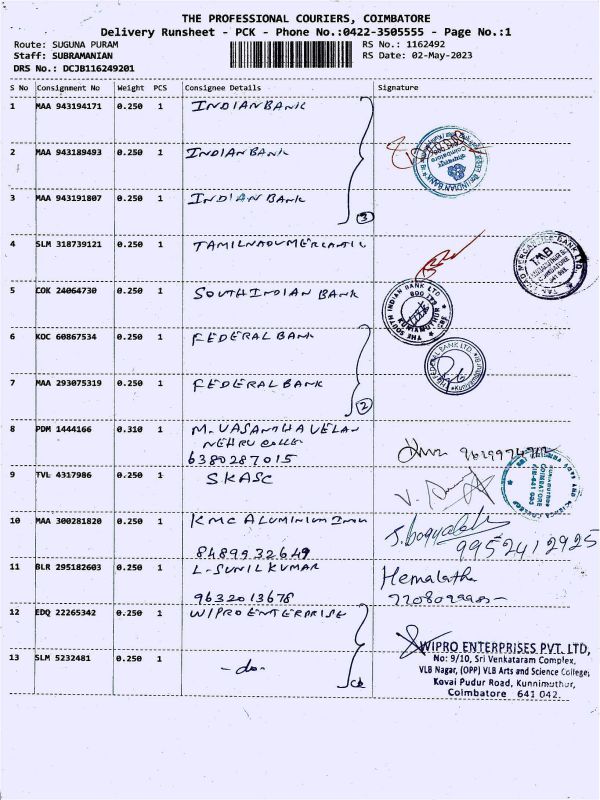 THE PROFESSIONAL COURIERS, COIMBATORE
Delivery Runsheet - PCK - Phone No.:0422-3505555 - Page No.:1
Route: SUGUNA PURAM RS No.: 1162492
Staff: SUBRAMANIAN RS Date: 02-May-2023
DRS No.: DCJB116249201
S No Consignment No Weight PCS Consignee Details Signature
1 MAA 943194171 0.250 1 INDIAN BANK
2 MAA 943189493 0.250 1 INDIAN BANK
3 MAA 943191807 0.250 1 INDIAN BANK
3
4 SLM 318739121 0.250 1 TAMILNADU MERCANTIL
5 COK 24064730 0.250 1 SOUTH INDIAN BANK
6 KOC 60867534 0.250 1 FEDERAL BANK
7 MAA 293075319 0.250 1 FEDERAL BANK
2
8 PDM 1444166 0.310 1 M. VASANTHAVELAN
NEHRU
6380287015
9 TVL 4317986 0.250 1 SKASC
10 MAA 300281820 0.250 1 KMC ALUMINIUM
8489932649
9952412925
11 BLR 295182603 0.250 1 L-SUNIL KUMAR
Hemalatha
9632013678
12 EDQ 22265342 0.250 1 WIPRO ENTERPRISE
13 SLM 5232481 0.250 1 -do-
WIPRO ENTERPRISES PVT. LTD,
No: 9/10, Sri Venkataram Complex,
VLB Nagar, (OPP) VLB Arts and Science College,
Kovai Pudur Road, Kunnimuthur,
Coimbatore 641 042.